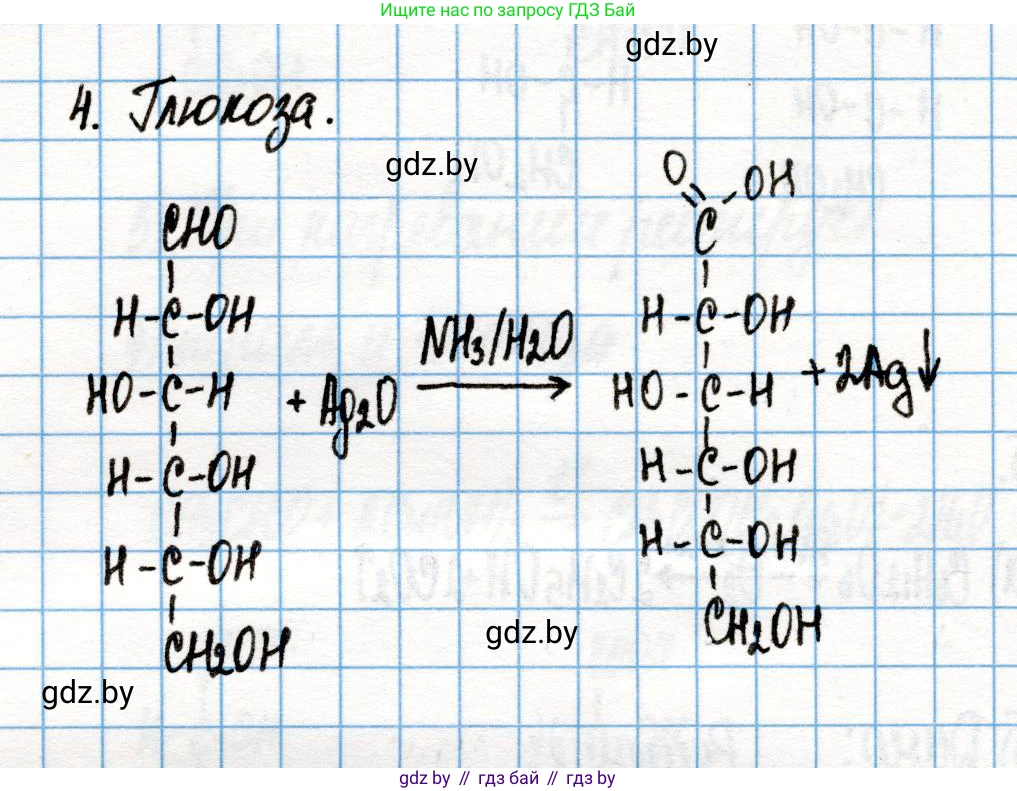 Ищите нас по запросу ГДЗ Бай
gdz.by
4. Глюкоза.
gdz.by
O OH
CHO C
H-C-OH NH3/H2O H-C-OH
HO-C-H + Ag2O → HO-C-H + 2Ag↓
H-C-OH H-C-OH
H-C-OH H-C-OH
CH2OH CH2OH
gdz.by
gdz.by
gdz by // гдз бай // гдз by